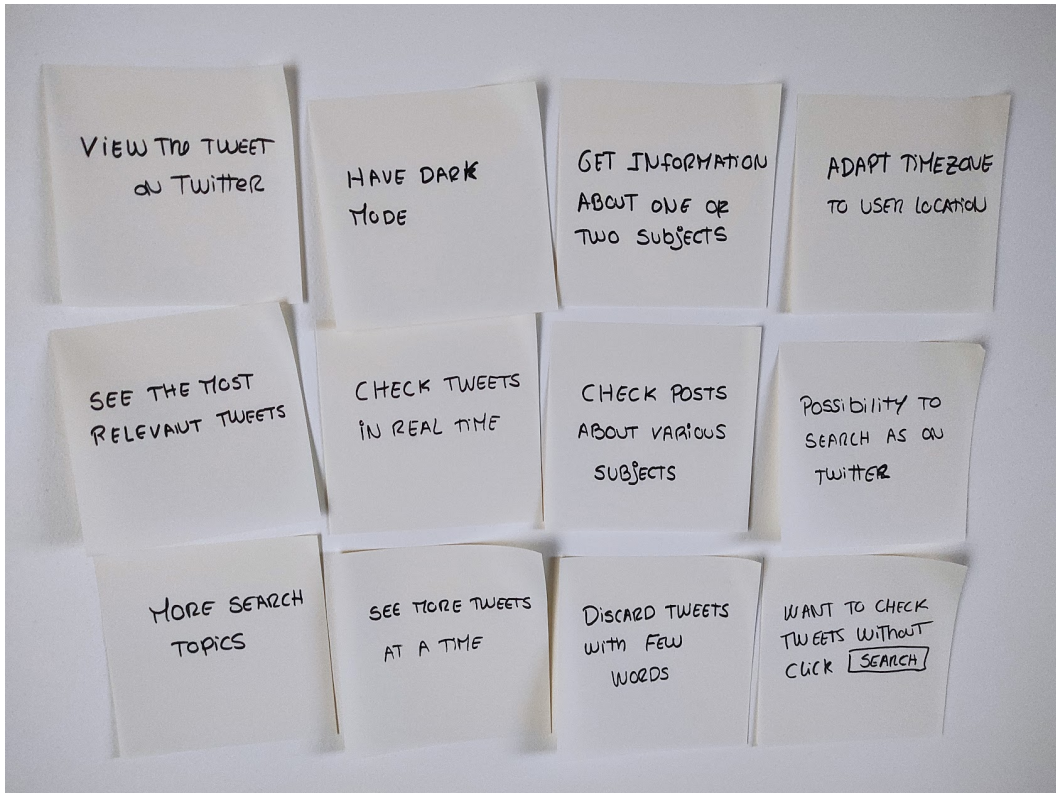 VIEW THE TWEET
ON TWITTER
HAVE DARK
MODE
GET INFORMATION
ABOUT ONE OR
TWO SUBJECTS
ADAPT TIMEZONE
TO USER LOCATION
SEE THE MOST
RELEVANT TWEETS
CHECK TWEETS
IN REAL TIME
CHECK POSTS
ABOUT VARIOUS
SUBJECTS
POSSIBILITY TO
SEARCH AS ON
TWITTER
MORE SEARCH
TOPICS
SEE MORE TWEETS
AT A TIME
DISCARD TWEETS
WITH FEW
WORDS
WANT TO CHECK
TWEETS WITHOUT
CLICK SEARCH